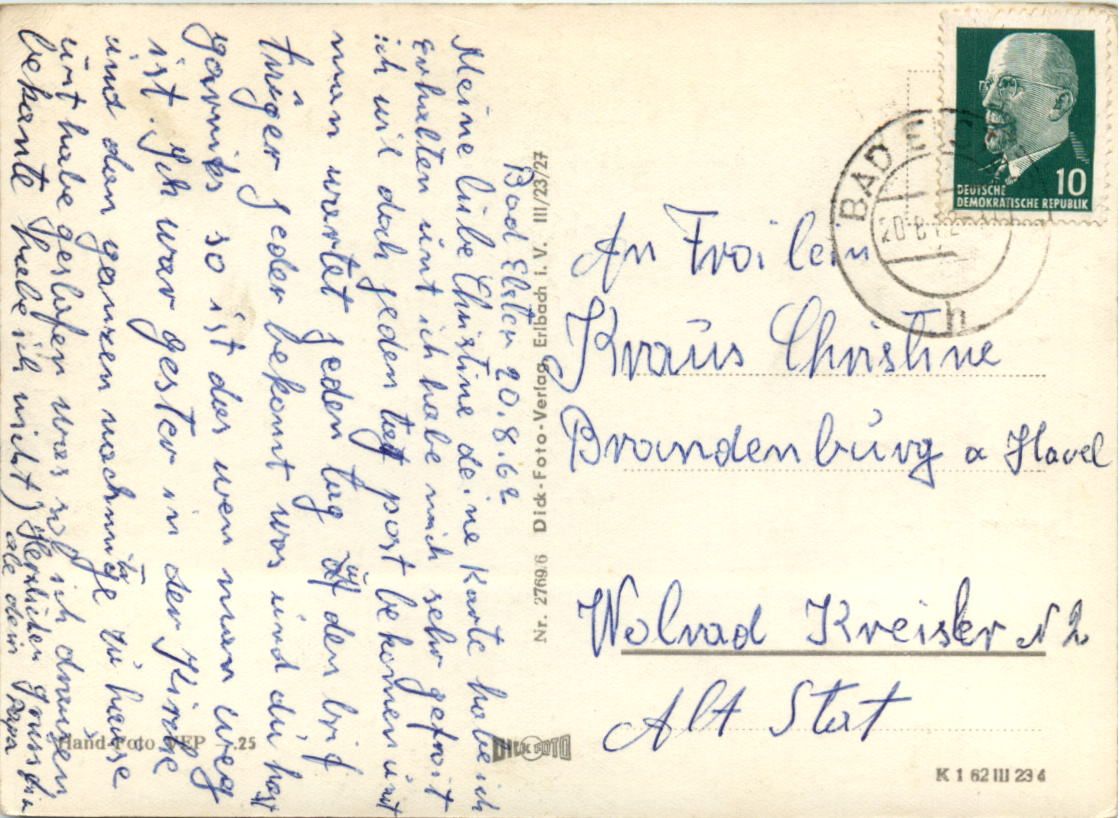 Bad Elster 20.8.62
Meine liebe Christine deine Karte habe ich
erhalten unt ich habe mich sehr gefroit
ich wil doch jeden tag post bekomen unt
man wartet jeden tag auf den brif
träger jeder bekomt was und du hast
garniks so ist das wen man weg
ist. Ich war gester in der Kirche
und den ganzen nachmitage zu hause
unt habe geslafen was sol ich draußen
bekante habe ich nicht) Herzlichen grus
ale dein Papa
An Froilein
Kraus Christine
Brandenburg a Havel
Wolrad Kreisler N 2
Alt Stat
DEUTSCHE
DEMOKRATISCHE REPUBLIK
10
BAD
20.8.62
h
Nr. 2769/6 Dick-Foto-Verlag, Erlbach i. V. III/23/27
Hand-Foto VEP -.25
DICK FOTO
K 1 62 III 23 4